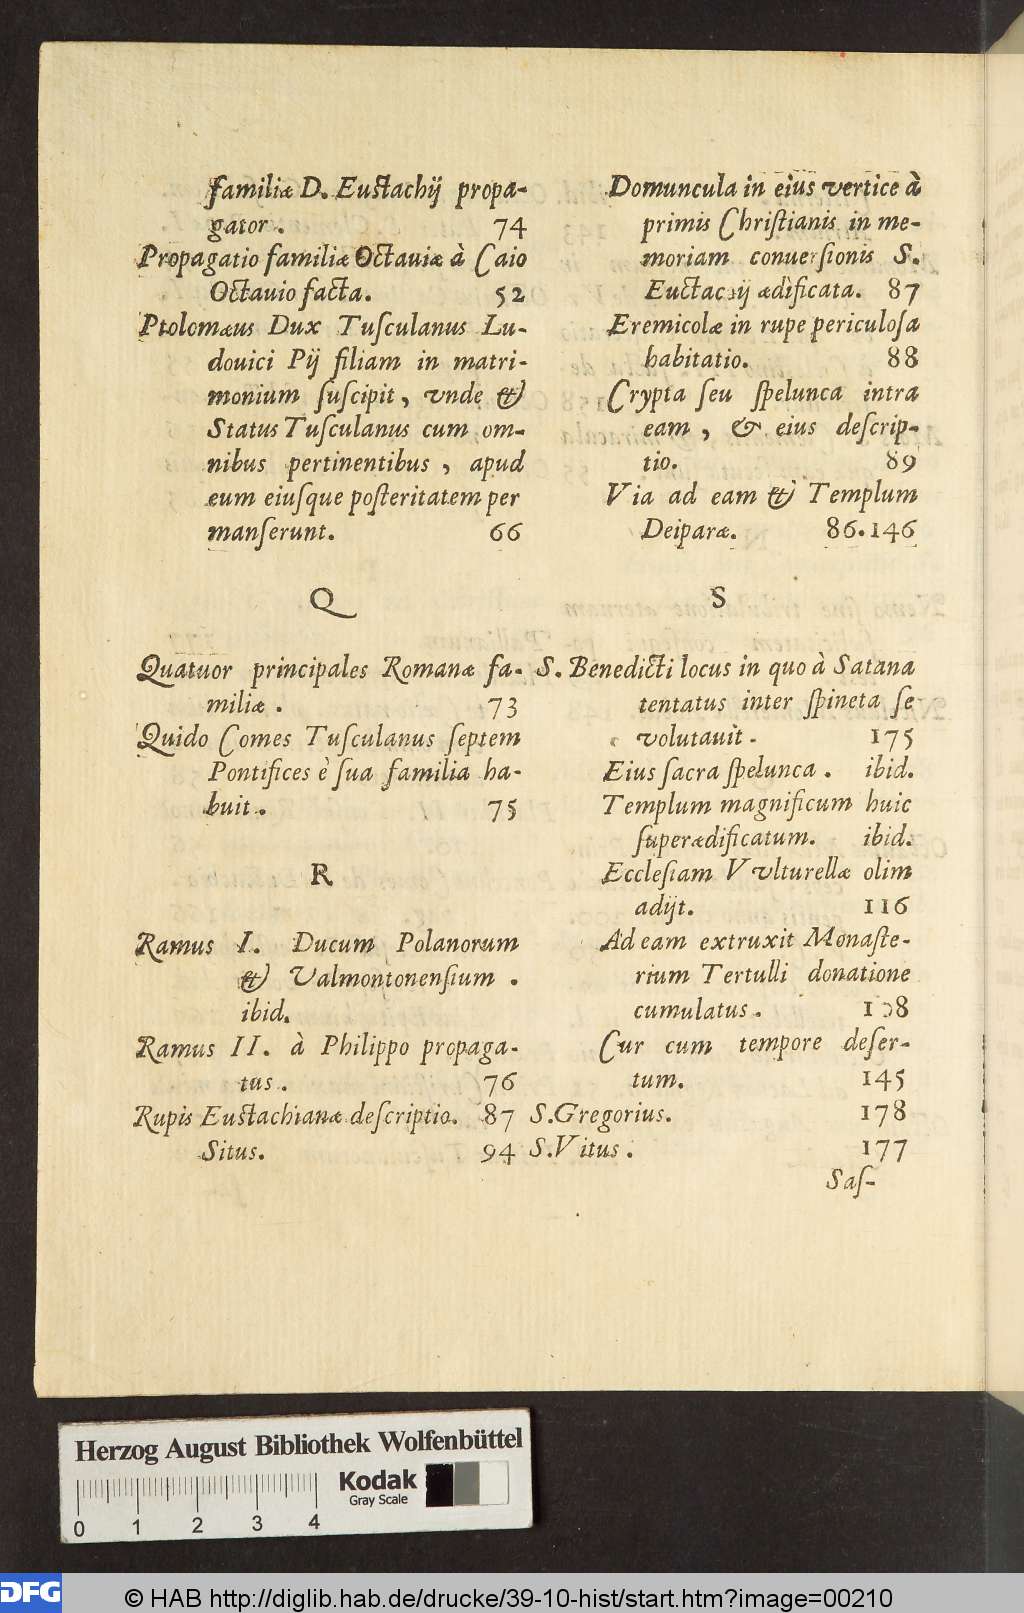 familiæ D. Eustachij propa-
gator. 74
Propagatio familiæ Octauiæ à Caio
Octauio facta. 52
Ptolomæus Dux Tuſculanus Lu-
douici Pij filiam in matri-
monium ſuſcipit, vnde &
Status Tuſculanus cum om-
nibus pertinentibus, apud
eum eiuſque poſteritatem per
manſerunt. 66
Q
Quatuor principales Romanæ fa-
miliæ. 73
Quido Comes Tuſculanus ſeptem
Pontifices è ſua familia ha-
buit. 75
R
Ramus I. Ducum Polanorum
& Valmontonenſium.
ibid.
Ramus II. à Philippo propaga-
tus. 76
Rupis Euſtachianæ deſcriptio. 87
Situs. 94
Domuncula in eius vertice à
primis Chriſtianis in me-
moriam conuerſionis S.
Euctachij ædificata. 87
Eremicolæ in rupe periculoſa
habitatio. 88
Crypta ſeu ſpelunca intra
eam, & eius deſcrip-
tio. 89
Via ad eam & Templum
Deiparæ. 86.146
S
S. Benedicti locus in quo à Satana
tentatus inter ſpineta ſe
volutauit. 175
Eius ſacra ſpelunca. ibid.
Templum magnificum huic
ſuperædificatum. ibid.
Eccleſiam Vvlturellæ olim
adijt. 116
Ad eam extruxit Monaſte-
rium Tertulli donatione
cumulatus.
Cur cum tempore deſer-
tum. 145
S. Gregorius. 178
S. Vitus. 177
Saſ-
Herzog August Bibliothek Wolfenbüttel
Kodak
Gray Scale
0 1 2 3 4
DFG
© HAB http://diglib.hab.de/drucke/39-10-hist/start.htm?image=00210